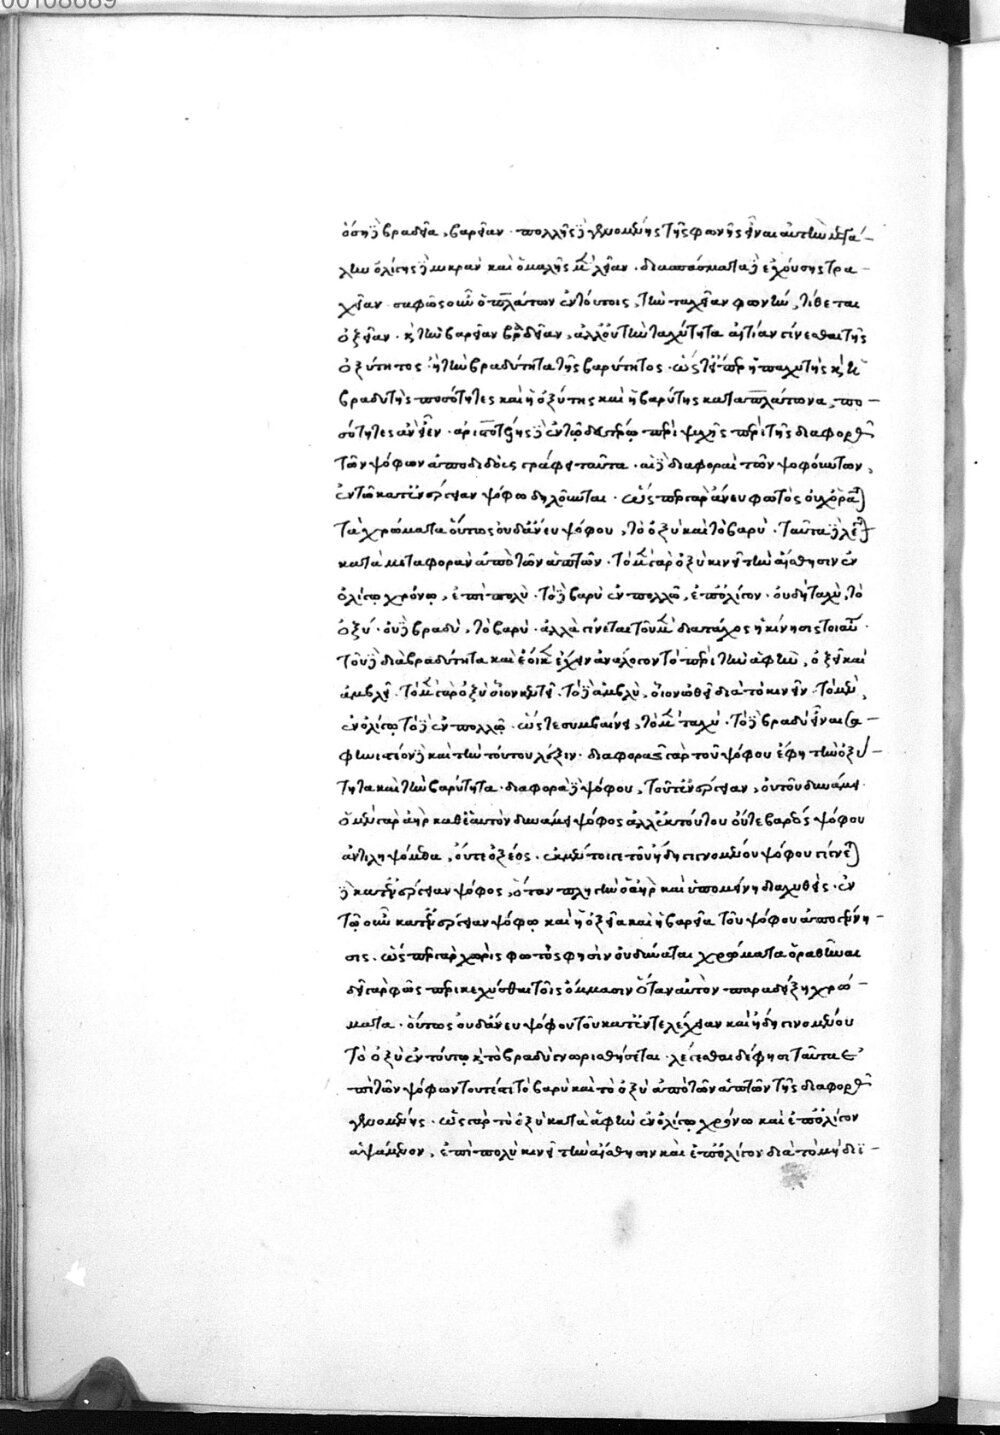 00108689
ὅση δὲ βραδεῖα, βαρεῖαν. πολλῆς δὲ γενομένης τῆς φωνῆς εἶναι αὐτὴν μεγά-
λην ὀλίγης δὲ μικρὰν καὶ ὁμαλῆς μὲν λείαν. διασπάσματα δὲ ἐχούσης τρα-
χεῖαν. σαφῶς οὖν ὁ πλάτων ἐν τούτοις, τὴν ταχεῖαν φωνὴν, τίθεται
ὀξεῖαν. κ τὴν βαρεῖαν βραδεῖαν, ἀλλ' οὐ τὴν ταχύτητα αἰτίαν γίνεσθαι τῆς
ὀξύτητος. ἢ τὴν βραδύτητα τῆς βαρύτητος. ὥστε εἴπερ ἡ παχυτὴς κ ἡ
βραδυτὴς ποσότητες καὶ ἡ ὀξύτης καὶ ἡ βαρύτης κατὰ πλάτωνα, πο-
σότητες ἂν εἶεν. ἀριστοτέλης δὲ ἐν τῷ δευτέρῳ περὶ ψυχῆς περὶ τῆς διαφορᾶς
τῶν ψόφων ἀποδιδοὺς γράφει ταῦτα. αἱ δὲ διαφοραὶ τῶν ψοφούντων,
ἐν τῶ κατ' ἐνέργειαν ψόφω δηλοῦνται. ὥσπερ γὰρ ἄνευ φωτὸς οὐχ ὁρᾶται
τὰ χρώματα οὕτως οὐδ' ἄνευ ψόφου, τὸ ὀξὺ καὶ τὸ βαρὺ. ταῦτα δὲ λέγεται
κατὰ μεταφορὰν ἀπὸ τῶν ἁπτῶν. τὸ μὲν γὰρ ὀξὺ κινεῖ τὴν αἴσθησιν ἐν
ὀλίγῳ χρόνῳ, ἐπὶ πολύ. τὸ δὲ βαρὺ ἐν πολλῶ, ἐπ' ὀλίγον. οὐ δὴ ταχὺ, τὸ
ὀξύ. οὐδὲ βραδὺ, τὸ βαρὺ. ἀλλὰ γίνεται τοῦ μὲν διὰ τάχος ἡ κίνησις τοιαύτη.
τοῦ δὲ διὰ βραδυτῆτα καὶ ἔοικεν ἔχειν ἀνάλογον τὸ περὶ τὴν ἁφὴν, ὀξεῖ καὶ
ἀμβλεῖ. τὸ μὲν γὰρ ὀξὺ οἷον κεντεῖ. τὸ δὲ ἀμβλὺ, οἷον ὠθεῖ διὰ τὸ κινεῖν. τὸ μὲν,
ἐν ὀλίγω τὸ δὲ ἐν πολλῷ. ὥστε συμβαίνει, τὸ μὲν ταχὺ. τὸ δὲ βραδὺ εἶναι σα-
φηνιστέον δὲ καὶ τὴν τούτου λέξιν. διαφορὰς γὰρ τοῦ ψόφου ἔφη τὴν ὀξύ-
τητα καὶ τὴν βαρύτητα. διαφορὰ δὲ ψόφου, τοῦ ἐνεργείαν, οὐ τοῦ δυνάμει.
ὁ μὲν γὰρ ἀὴρ καθ' ἑαυτὸν δυνάμει ψόφος ἀλλ' ἐκ τούτου οὔτε βαρέος ψόφου
ἀντιληψόμεθα, οὔτε ὀξέος. ἐκ μέντοι γε τοῦ ἤδη γινομένου ψόφου γίνεται
δὲ κατ' ἐνέργειαν ψόφος, ὅταν πληγὴν ὁ ἀὴρ καὶ ὑπομείνη διαχυθεὶς. ἐν
τῷ οὖν κατ' ἐνέργειαν ψόφῳ καὶ ἡ ὀξεῖα καὶ ἡ βαρεῖα τοῦ ψόφου ἀπογέννη-
σις. ὥσπερ γὰρ χωρὶς φωτὸς φησὶν οὐ δύναται χρώματα ὁραθῆναι
δεῖ γὰρ φῶς περικεχύσθαι τοῖς ὄμμασιν ὅταν αὐτὸν παραδείξη χρώ-
ματα. οὕτως οὐδ' ἄνευ ψόφου τοῦ κατ' ἐντελέχειαν καὶ ἤδη γινομένου
τὸ ὀξὺ ἐν τούτῳ κ τὸ βραδὺ γνωρισθήσεται. λέγεσθαι δέ φησι ταῦτα ἐ-
πὶ τῶν ψόφων τουτέστι τὸ βαρὺ καὶ τὸ ὀξὺ ἀπὸ τῶν ἁπτῶν τῆς διαφορᾶς
γενομένης. ὡς γὰρ τὸ ὀξὺ κατὰ ἁφὴν ἐν ὀλίγῳ χρόνω καὶ ἐπ' ὀλίγον
ἁψάμενον, ἐπὶ πολὺ κινεῖ τὴν αἴσθησιν καὶ ἐπ' ὀλίγον διὰ τὸ μὴ διϊ-